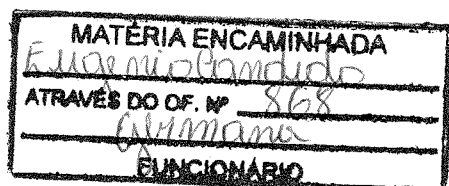 MATÉRIA ENCAMINHADA
Eugenio Candido
ATRAVÉS DO OF. Nº 868
Germana
FUNCIONÁRIO